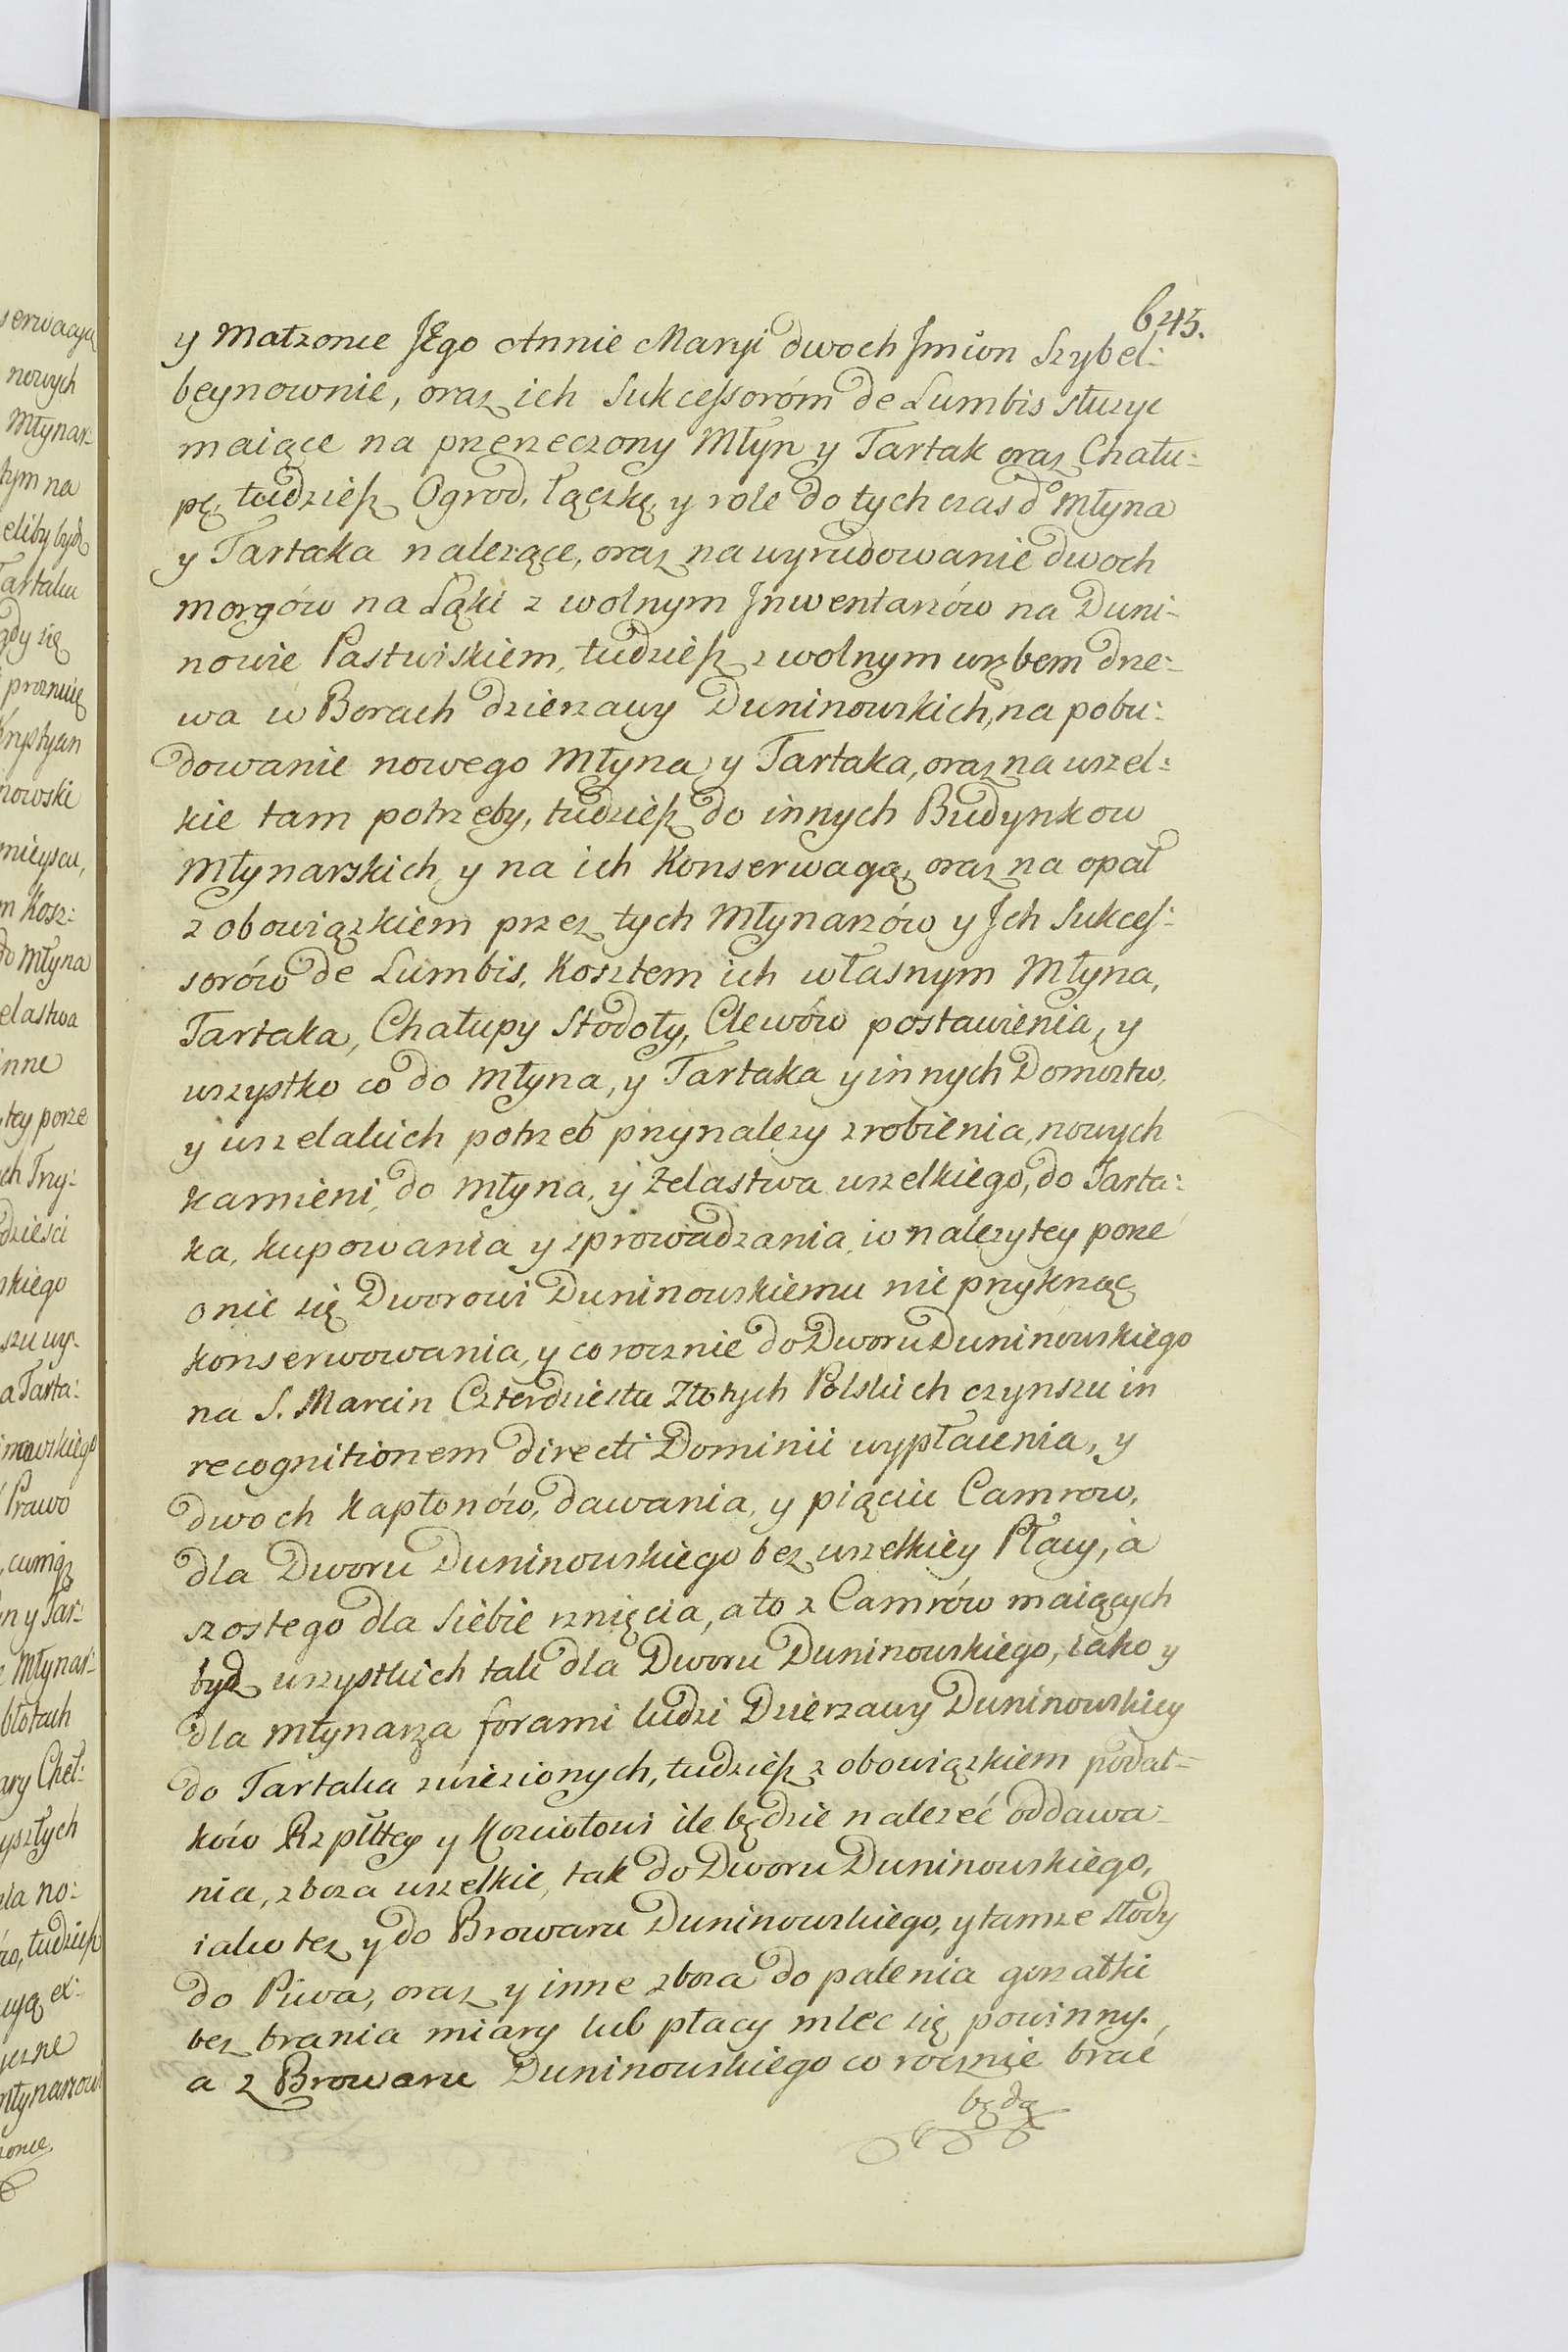 645.
y Małzonce JEgo Annie Maryi dwoch Jmion Szybel:
beynownie, oraz ich Sukcessoróm de Lumbis służyc
maiące na przerzeczony Młyn y Tartak oraz Chału:
pę, tudzież Ogrod, łączkę, y role dotychczas do Młyna
y Tartaka nalezące, oraz na wyrudowanie dwoch
morgów na Łąki z wolnym Jnwentarzów na Duni-
nowie Pastwiskiem, tudzież z wolnym wrębem drze:
wa w Borach dzierzawy Duninowskich, na pobu:
dowanie nowego Młyna y Tartaka, oraz na wszel:
kie tam potrzeby, tudzież do innych Budynkow
Młynarskich y na ich Konserwacyą, oraz na opał
z obowiązkiem przez tych Młynarzów y Jch Sukces:
sorów de Lumbis, Kosztem ich własnym Młyna,
Tartaka, Chałupy Stodoły, Chlewów postawienia, y
wszystko co do Młyna, y Tartaka y innych Domostw,
y wszelakich potrzeb przynalezy zrobienia, nowych
kamieni, do Młyna, y Żelastwa wszelkiego, do Tarta:
ka, kupowania y sprowadzania, w nalezytey porze
o nie się Dworowi Duninowskiemu nie przykrząc
konserwowania, y corocznie do Dworu Duninowskiego
na S. Marcin Czterdziestu Złotych Polskich czynszu in
recognitionem directi Dominii wypłacenia, y
dwoch Kapłonów, dawania, y piąciu Camrow,
dla Dworu Duninowskiego bez wszelkiey Płacy, à
szostego dla siebie rznięcia, a to z Camrów maiących
bydz wszystkich tak dla Dworu Duninowskiego, iako y
dla Młynarza forami ludzi Dzierzawy Duninowskiey
do Tartaka zwiezionych, tudzież z obowiązkiem podat-
ków Rzpltey y Kościołowi ile będzie nalezeć oddawa-
nia, zboza wszelkie, tak do Dworu Duninowskiego,
iako tez y do Browaru Duninowskiego, y tamze słody
do Piwa, oraz y inne zboza do palenia gorzałki
bez brania miary lub płacy mlec się powinny.
a z Browaru Duninowskiego corocznie brać
będą